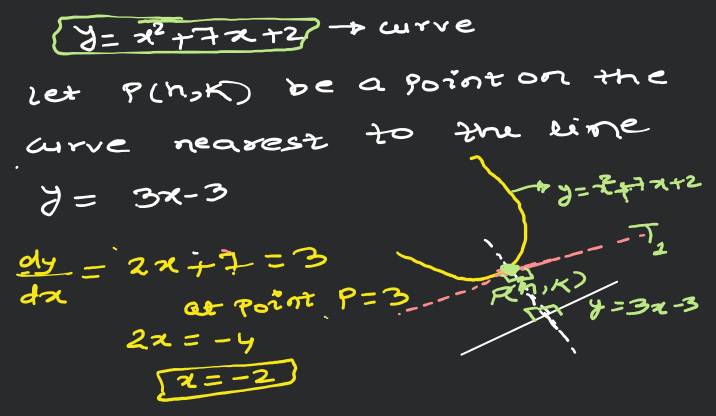 y = x² + 7x + 2 → curve
Let P(h,k) be a point on the
curve nearest to the line
y = 3x-3
→ y = x² + 7x + 2
dy/dx = 2x + 7 = 3
T₁
at point P = 3
P(h,k)
y = 3x-3
2x = -4
x = -2